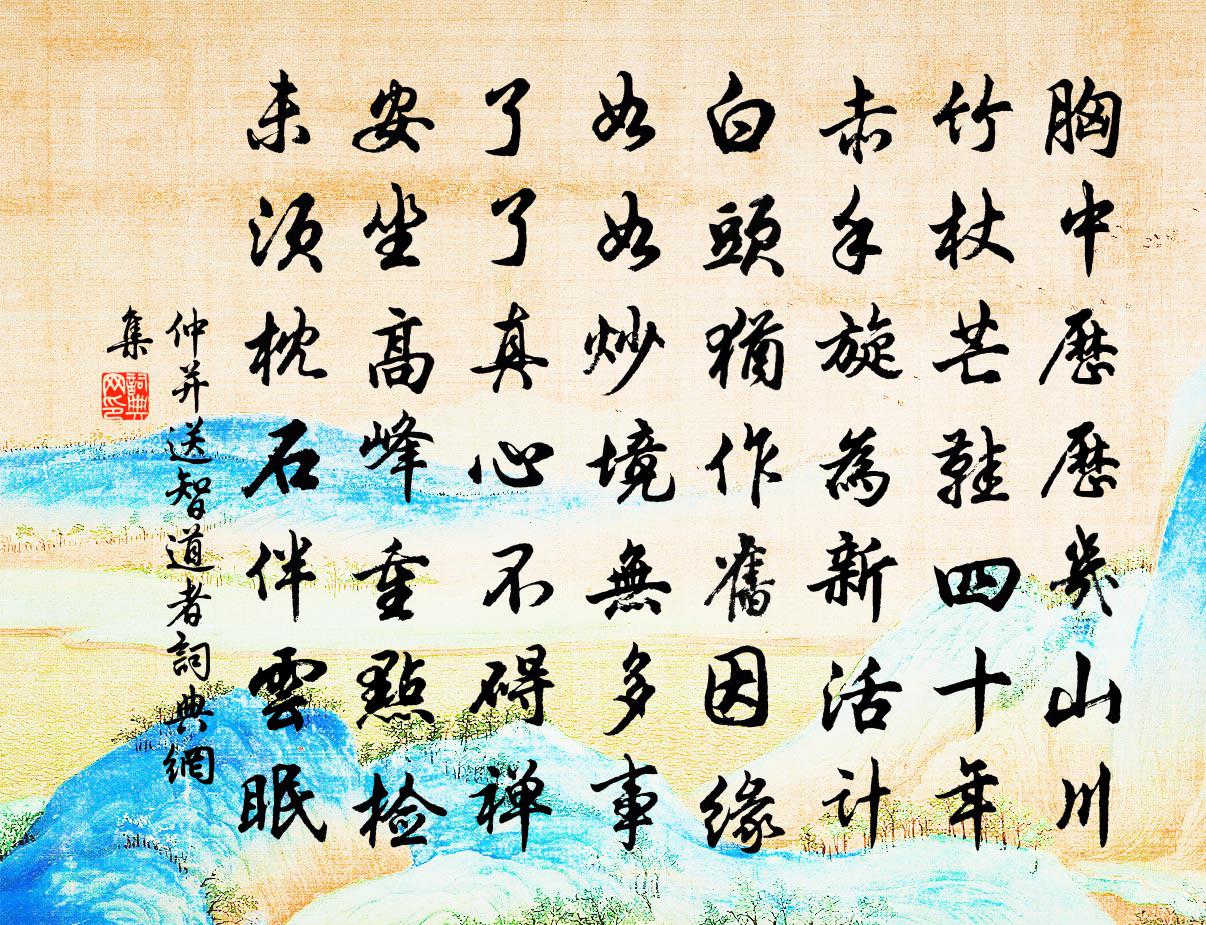 胸中歷歷幾山川
竹杖芒鞋四十年
赤手旋為新活計
白頭猶作舊因緣
如如炒境無多事
了了真心不碍禅
安坐高峰重點检
未須枕石伴雲眠
仲并送智道者詞典網
集
詞典網印